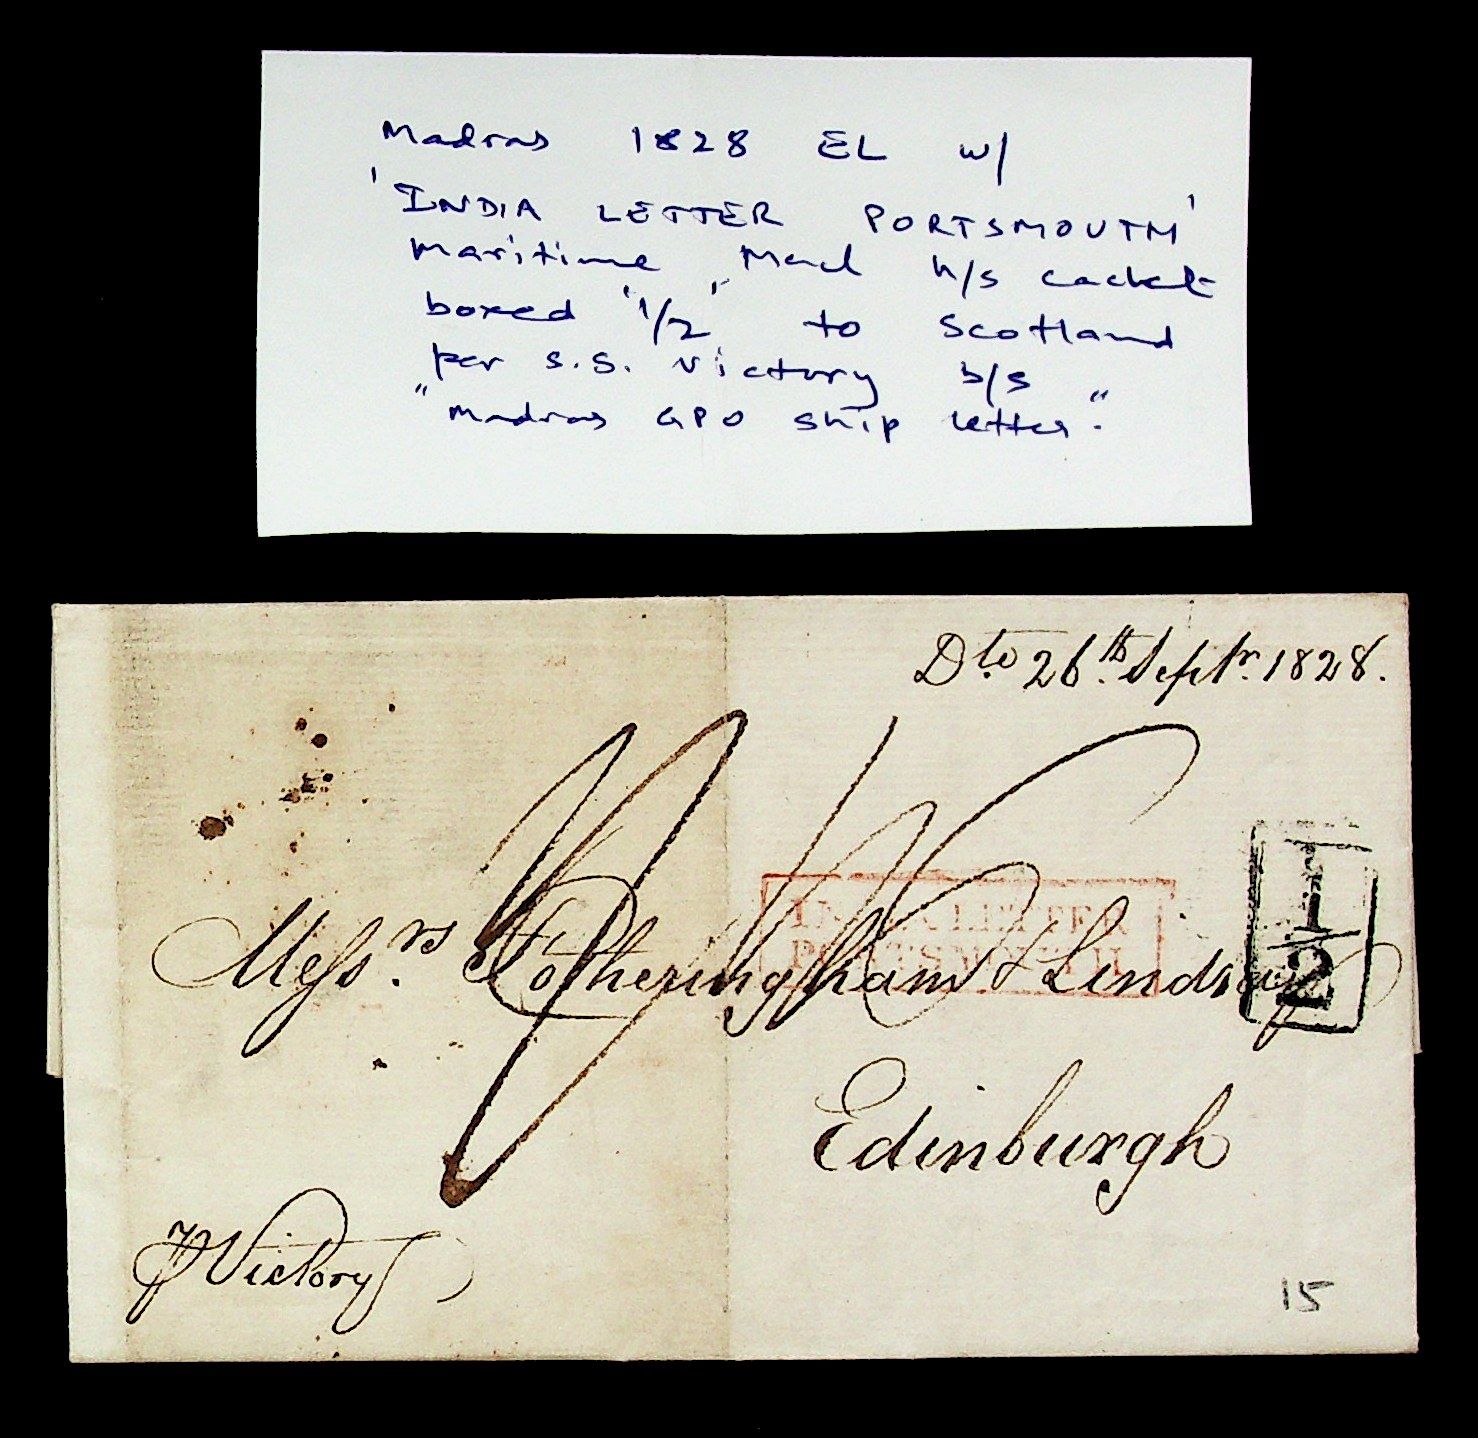 Madras 1828 EL w/
'INDIA LETTER PORTSMOUTH'
maritime, Mail h/s cachet
boxed '1/2' to Scotland
per S.S. Victory b/s
"Madras GPO Ship letter".
Dto. 26th. Septr. 1828.
INDIA LETTER
PORTSMOUTH
1/2
Messrs. Fotheringham & Lindsay
Edinburgh
p Victory
15